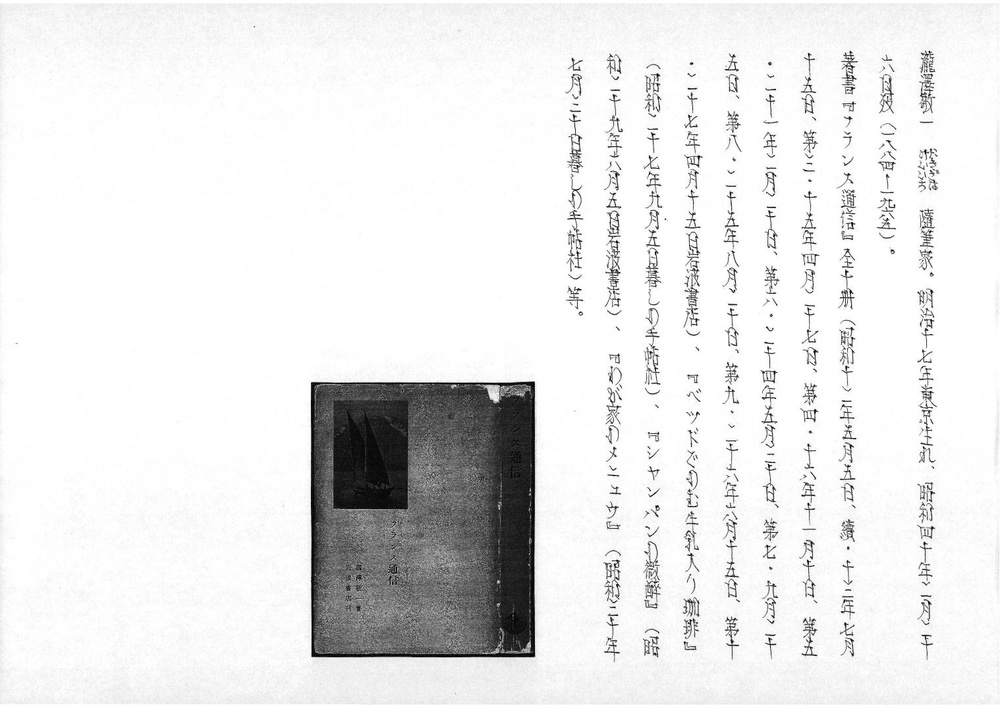 瀧澤敬一　たきざは　けいいち　隨筆家。明治十七年東京生れ、昭和四十年二月二十
六日歿（一八八四－一九六五）。
著書『フランス通信』全十册（昭和十二年五月五日、續・十三年七月
十五日、第三・十五年四月二十七日、第四・十六年十一月十日、第五
・二十一年二月二十日、第六・二十四年五月三十日、第七・九月二十
五日、第八・二十五年八月二十日、第九・二十六年六月十五日、第十
・二十七年四月十五日岩波書店）、『ベツドでのむ牛乳入り珈琲』
（昭和二十七年九月五日暮しの手帖社）、『シャンパンの微醉』（昭
和二十九年六月五日岩波書店）、『わが家のメニュウ』（昭和三十年
七月二十日暮しの手帖社）等。
フランス通信
フランス通信
瀧澤敬一著